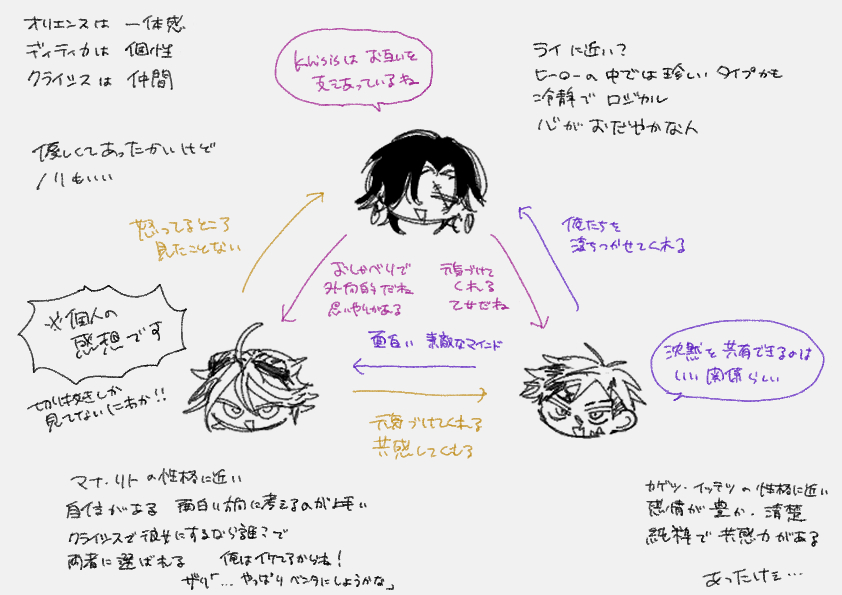 オリエンスは 一体感
ディティカは 個性
クライシスは 仲間
Krisisは お互いを
支えあっているね
ライに近い?
ヒーローの中では珍しいタイプかも
冷静で ロジカル
心が おだやかな人
優しくてあったかいけど
ノリもいい
怒ってるところ
見たことない
俺たちを
落ちつかせてくれる
おしゃべりで
外向的だね
思いやりがある
元気づけて
くれる
乙女だね
※個人の
感想です
切り抜きしか
見てないにわか!!
面白い 素敵なマインド
元気づけてくれる
共感してくれる
沈黙を共有できるのは
いい関係らしい
マナ・リトの性格に近い
自信がある 面白い方向に考えるのが上手い
クライシスで彼女にするなら誰?で
両者に選ばれる 俺はイケてるからね!
ザリ「… やっぱり ベンタにしようかな」
カゲツ・イッテツの性格に近い
感情が豊か・清楚
純粋で 共感力がある
あったけェ…